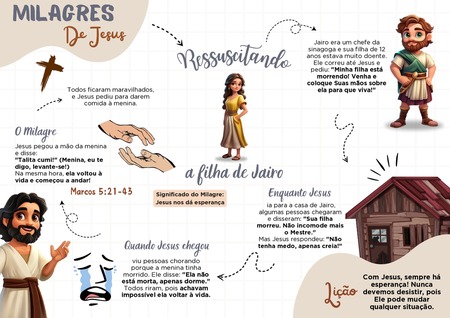 MILAGRES
De Jesus
Ressuscitando
a filha de Jairo
Significado do Milagre:
Jesus nos dá esperança
Jairo era um chefe da
sinagoga e sua filha de 12
anos estava muito doente.
Ele correu até Jesus e
pediu: "Minha filha está
morrendo! Venha e
coloque Suas mãos sobre
ela para que viva!"
Enquanto Jesus
ia para a casa de Jairo,
algumas pessoas chegaram
e disseram: "Sua filha
morreu. Não incomode mais
o Mestre."
Mas Jesus respondeu: "Não
tenha medo, apenas creia!"
Quando Jesus chegou
viu pessoas chorando
porque a menina tinha
morrido. Ele disse: "Ela não
está morta, apenas dorme."
Todos riram, pois achavam
impossível ela voltar à vida.
O Milagre
Jesus pegou a mão da menina
e disse:
"Talita cumi!" (Menina, eu te
digo, levante-se!)
Na mesma hora, ela voltou à
vida e começou a andar!
Marcos 5:21-43
Todos ficaram maravilhados,
e Jesus pediu para darem
comida à menina.
Lição
Com Jesus, sempre há
esperança! Nunca
devemos desistir, pois
Ele pode mudar
qualquer situação.